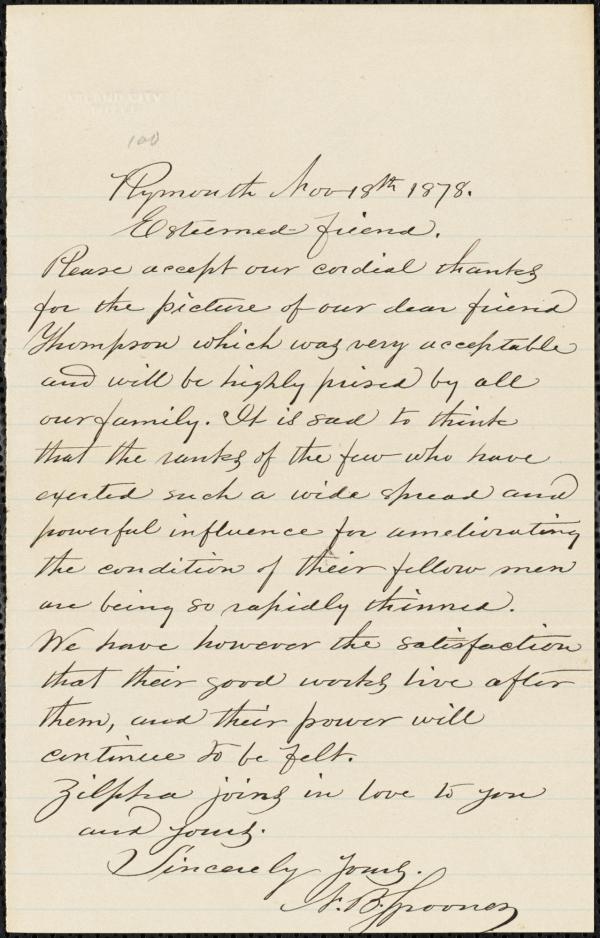 100
Plymouth Nov 18th 1878.
Esteemed friend.
Please accept our cordial thanks
for the picture of our dear friend
Thompson which was very acceptable
and will be highly prised by all
our family. It is sad to think
that the ranks of the few who have
exerted such a wide spread and
powerful influence for ameliorating
the condition of their fellow men
are being so rapidly thinned.
We have however the satisfaction
that their good works live after
them, and their power will
continue to be felt.
Zilpha joins in love to you
and yours.
Sincerely yours.
N. B. Spooner